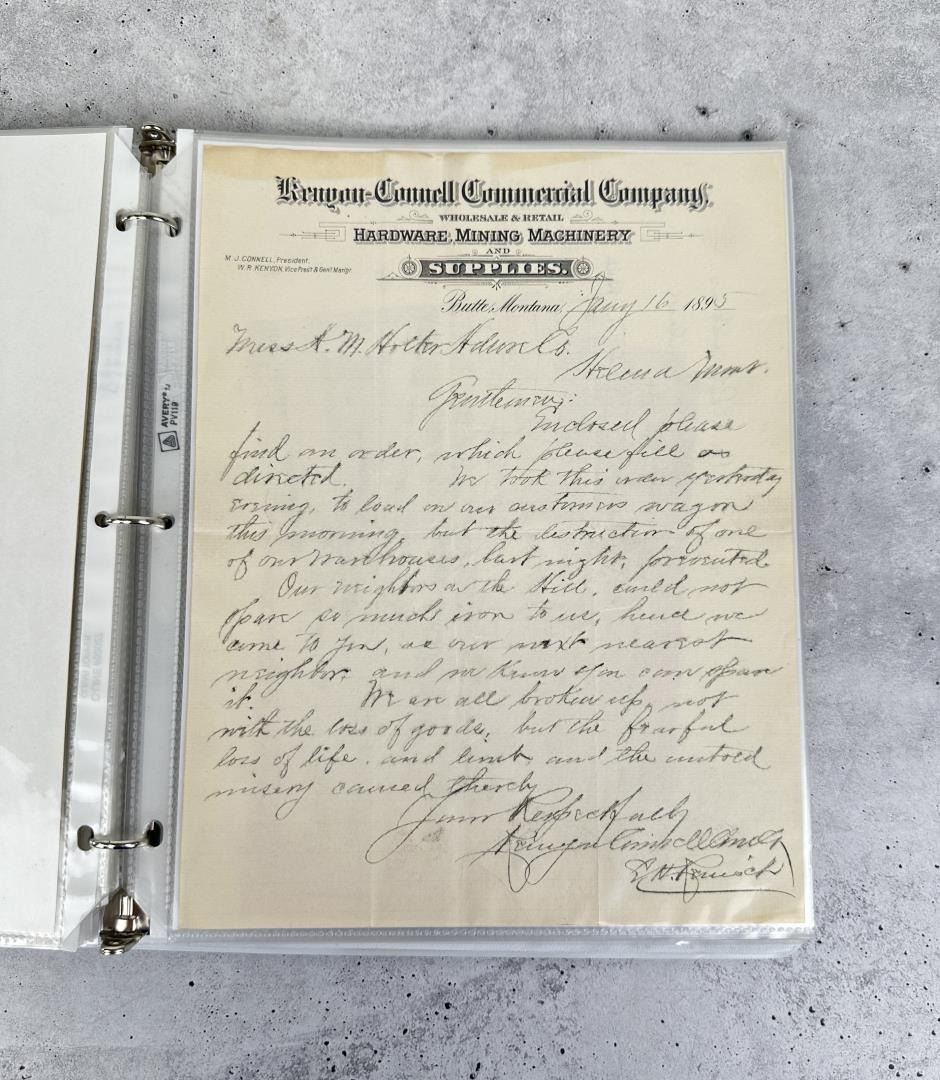 Kenyon-Connell Commercial Company,
WHOLESALE & RETAIL
HARDWARE, MINING MACHINERY
AND
SUPPLIES.
M. J. CONNELL, President.
W. R. KENYON, Vice Prest & Genl Man'gr.
Butte, Montana, Jany 16 1895
Mess A. M. Holter Hdwre Co.
Helena Mont.
Gentlemen:
Enclosed please
find an order, which please fill as
directed. We took this order yesterday
evening, to load on our customers wagon
this morning, but the destruction of one
of our warehouses, last night, prevented.
Our neighbors on the Hill, could not
spare so much iron to us, hence we
come to you, as our next nearest
neighbor, and we know you can spare
it. We are all broken up, not
with the loss of goods, but the fearful
loss of life, and limb and the untold
misery caused thereby
Yours Respectfully
Kenyon Connell Com Co
AVERY®
PV119